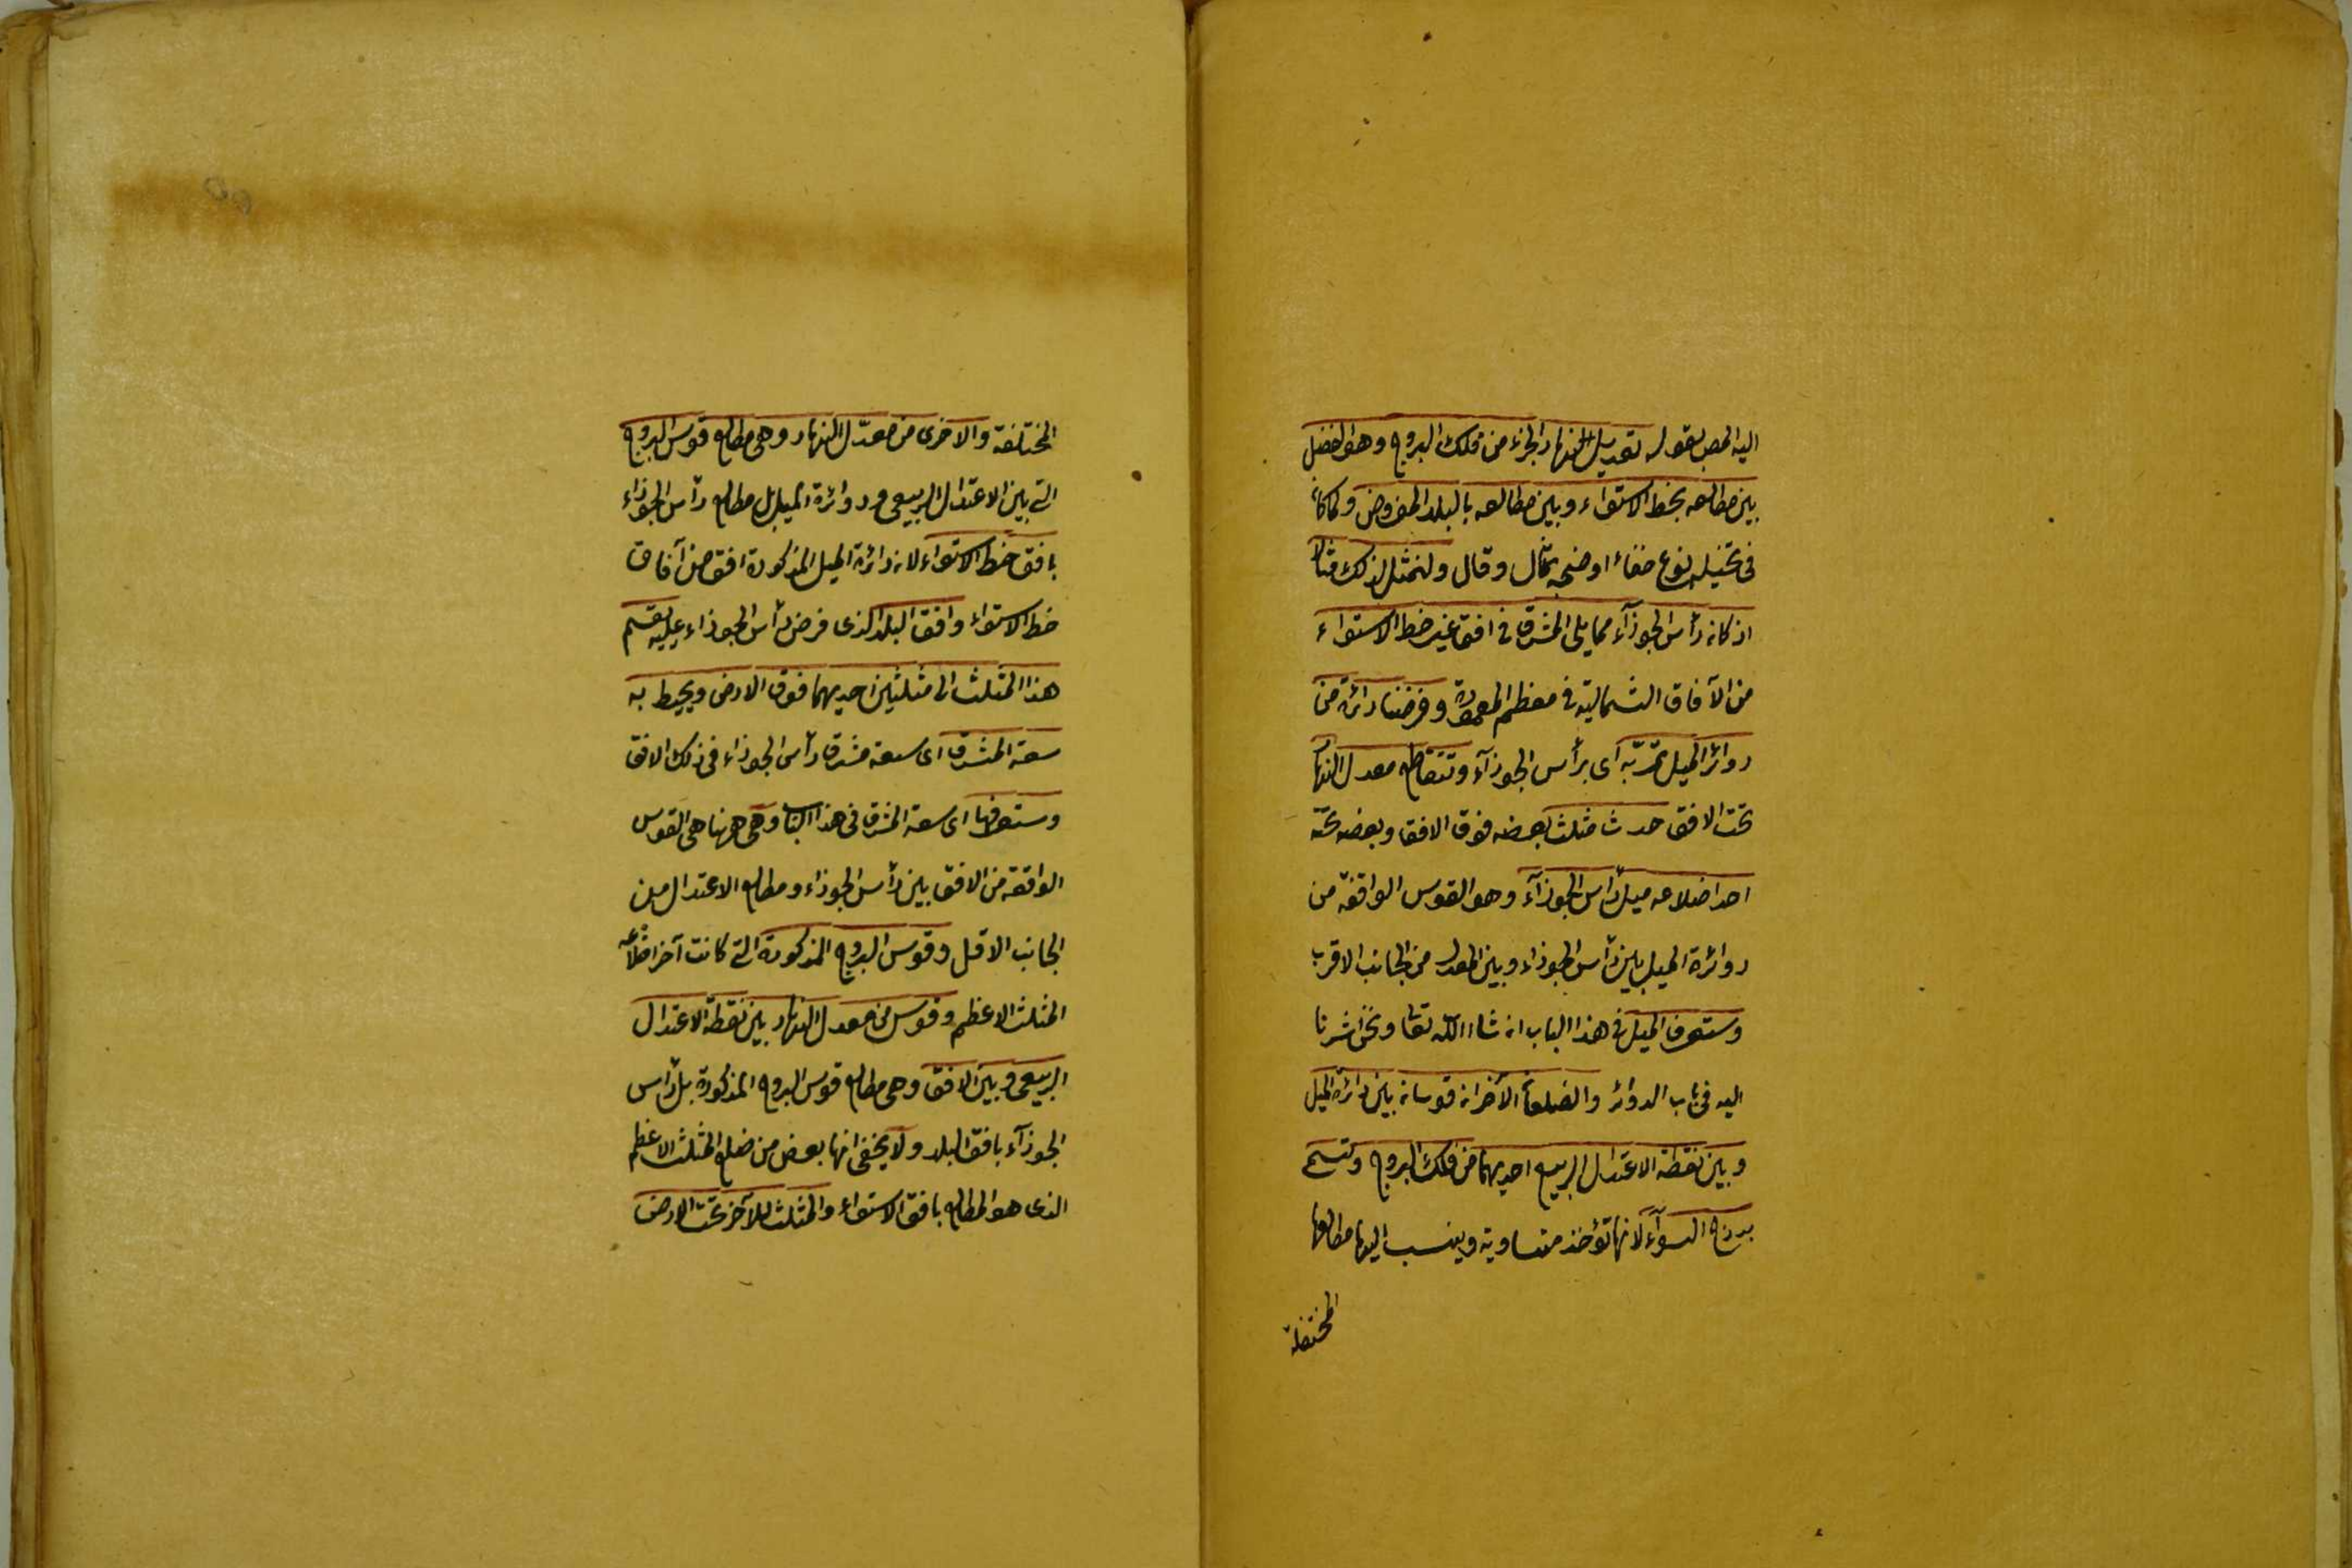 اليه المص بقوله تعديل النهار لجزء من فلك البروج وهو الفضل
بين مطالعه بخط الاستواء وبين مطالعه بالبلد المفروض ولما كان
في تخيله نوع خفاء اوضحه بمثال وقال ولنمثل لذلك مثالا
اذ كان رأس الجوزآء مما يلى المشرق في افق غير خط الاستواء
من الآفاق الشمالية في معظم المعمورة وفرضنا دائرة من
دوائر الميل تمر به اى برأس الجوزآء وتتقاطع معدل النهار
تحت الافق حدث مثلث بعضه فوق الافق وبعضه تحته
احد اضلاعه ميل رأس الجوزآء وهو القوس الواقعة من
دوائرة الميل بين رأس الجوزاء وبين المعدل من الجانب الاقرب
وستعرف الميل في هذا الباب ان شاء الله تعالى ونحن اشرنا
اليه في باب الدوائر والضلعان الآخران قوسان بين دائرة الميل
وبين نقطة الاعتدال الربيع احديهما من فلك البروج وتسمى
بدرج السوآء لانها تؤخذ متساوية وينسب اليها مطالعها
المختلفة
المختلفة والاخرى من معدّل النهار وهى مطالع قوس البروج
التى بين الاعتدال الربيعى ودوائرة الميل بل مطالع رأس الجوزاء
بافق خط الاستواء لان دائرة الميل المذكورة افق من آفاق
خط الاستواء وافق البلد الذى فرض رأس الجوزاء عليه يقسم
هذا المثلث الى مثلثين احديهما فوق الارض ويحيط به
سعة المشرق اى سعة مشرق رأس الجوزاء في ذلك الافق
وستعرفها اى سعة المشرق في هذا الباب وهى ههنا هى القوس
الواقعة من الافق بين رأس الجوزاء ومطالع الاعتدال من
الجانب الاقل وقوس البروج المذكورة التى كانت آخر اضلاعه
المثلث الاعظم وقوس من معدل النهار بين نقطة الاعتدال
الربيعى وبين الافق وهى مطالع قوس البروج المذكورة بل رأس
الجوزآء بافق البلد ولا يخفى انها بعض من ضلع المثلث الاعظم
الذى هو المطالع بافق الاستواء والمثلث الآخر تحت الارض